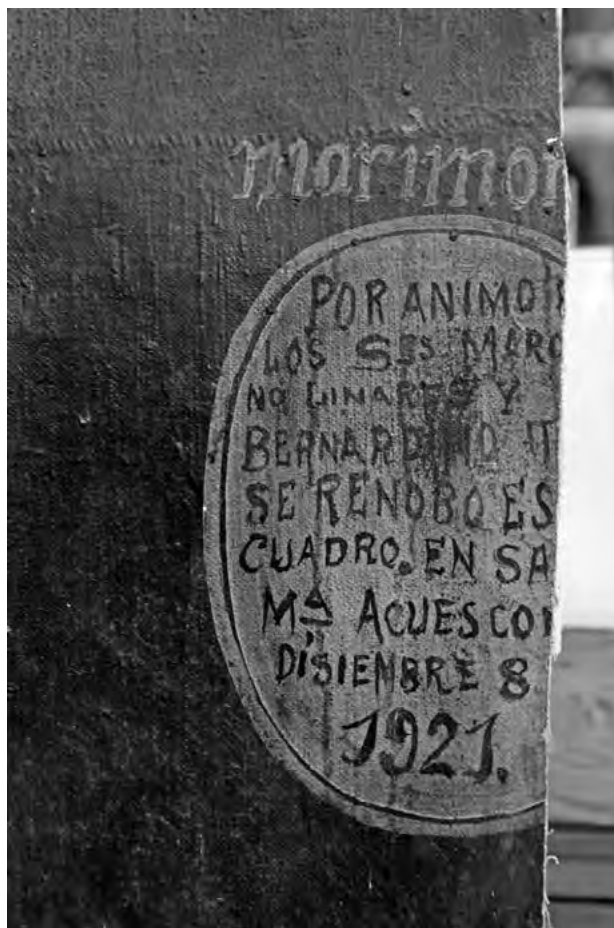 marimon
POR ANIMO
LOS S.ES MARC
NO LINARES Y
BERNARDINO
SE RENOBO ES
CUADRO. EN SA
Mª ACUESCO
DISIEMBRE 8
1921.